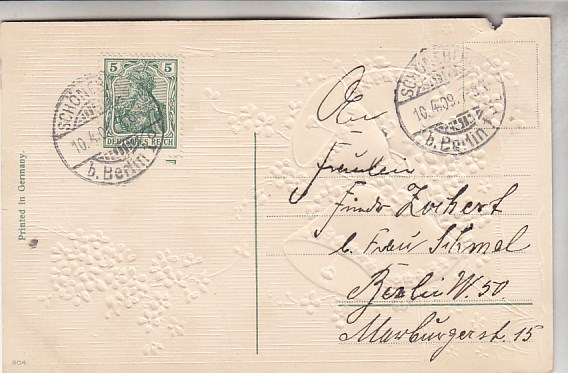 5 5
DEUTSCHES REICH
SCHÖNEB
10.4.09
b. Berlin
10.4.09.7-8N
b. Berlin
Printed in Germany.
An
Fräulein
Frieda Zochert
b. Frau Schmal
Berlin W. 50
Marburgerstr. 15
904